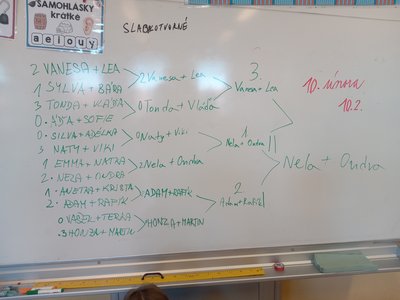 SAMOHLÁSKY
krátké
a e i o u y
SLABIKOTVORNÉ
2 VANESA + LEA
1 SYLVA + BÁRA
3 TONDA + VLÁĎA
0. ÁĎA + SOFIE
0. SILVA + ADÉLKA
3 NATY + VIKI
1 EMMA + NATKA
2. NELA + ONDRA
1. ANETKA + KRISTA
2. ADAM + RAFÍK
0 VAŠEK + TERKA
.3 HONZA + MARTIN
2 Vanesa + Lea
0 Tonda + Vláďa
0 Naty + Viki
2 Nela + Ondra
ADAM + RAFÍK
HONZA + MARTIN
3.
Vanesa + Lea
1
Nela + Ondra
2
Adam + Rafík
Nela + Ondra
10. února
10.2.